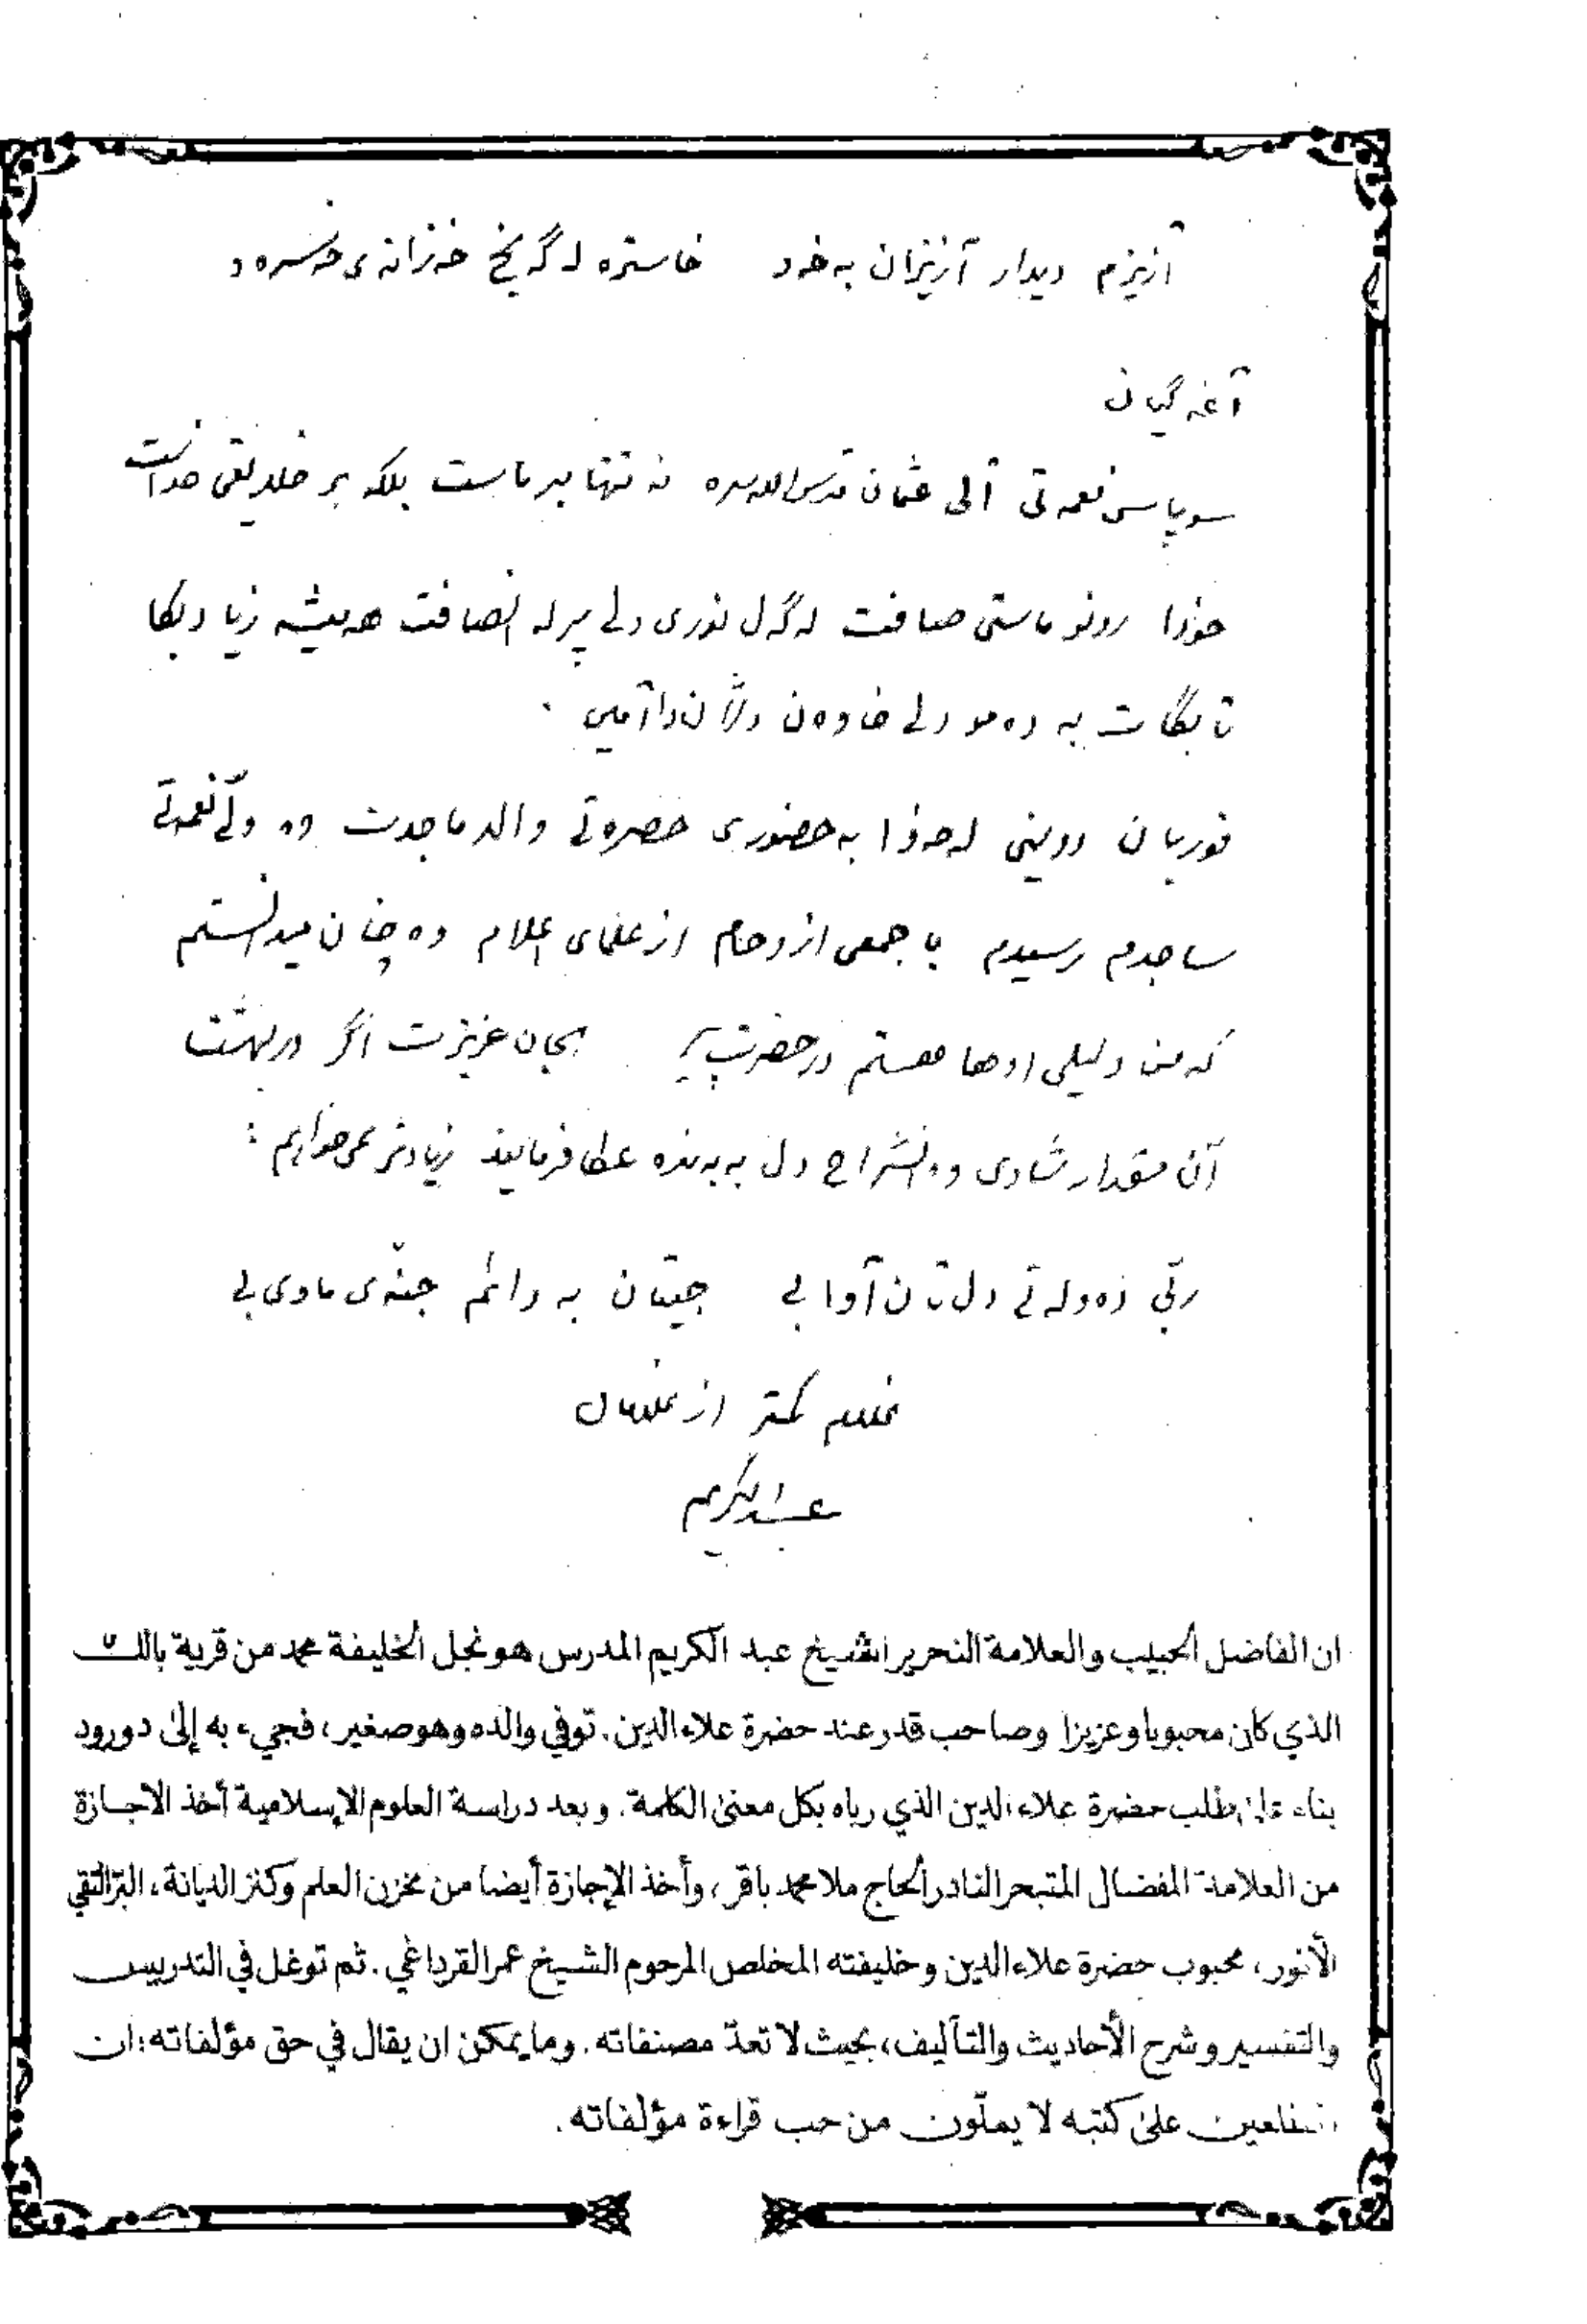 ئازیزم دیدار ئازیزان بەخود خاسترە لە گەنج خەزانەی خەسرەو
ئاغە گیان
سوپاس نعمەتی آلی عثمان قدس الله سره نە تنها بر ماست بلکە بر خلایق خداست
خودا رونو ماستی صافت لەگەل نوری دلی پر لە انصافت هەمیشە زیاد بکا
تا بگات بە دەمو دلی خاوەن دلان دا آمین .
قوربان دوینی لە خودا بە حضوری حضرەتی والد ماجدت وە ولی نعمەتی
ساجدم رسیدم با جمعی ازدحام از علمای اعلام وە چنان میدانستم
کە من دلیلی هستم در حضرت پیر بجان عزیزت اگر در بهشت
آن مقدار شادی و انشراح دل بە بندە عطا فرمایند زیادتر نمی خواهم :
ربی دەولەتی دل تان آوا بی جیتان بە دائم جنەی ماوی بی
غلام کمتر از غلامان
عبدالکریم
ان الفاضل الحبيب والعلامة النحرير الشيخ عبد الكريم المدرس هو نجل الخليفة محمد من قرية بالك
الذي كان محبوبا وعزيزا وصاحب قدر عند حضرة علاء الدين. توفي والده وهو صغير، فجيء به إلى دورود
بناء على طلب حضرة علاء الدين الذي رباه بكل معنى الكلمة. وبعد دراسة العلوم الإسلامية أخذ الاجازة
من العلامة المفضال المتبحر النادر الحاج ملا محمد باقر، وأخذ الإجازة أيضا من مخزن العلم وكنز الديانة، البرّ التقي
الأنور، محبوب حضرة علاء الدين وخليفته المخلص المرحوم الشيخ عمر القرداغي. ثم توغل في التدريس
والتفسير وشرح الأحاديث والتآليف، بحيث لا تعدّ مصنفاته. وما يمكن ان يقال في حق مؤلفاته: ان
المطلعين على كتبه لا يملّون من حب قراءة مؤلفاته.